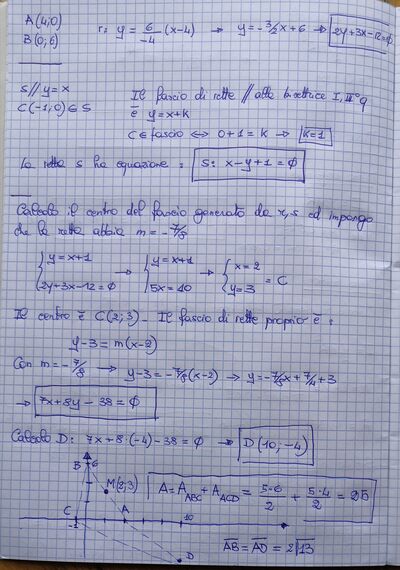 A(4;0)
B(0;6)
r: y = 6/-4 (x-4) → y = -3/2 x + 6 → 2y+3x-12=0
s // y=x
C(-1;0) ∈ s
Il fascio di rette // alla bisettrice I, III° q
è y = x+k
C ∈ fascio ⟺ 0+1 = k → k=1
la retta s ha equazione : s: x-y+1=0
Calcolo il centro del fascio generato da r, s ed impongo
che la retta abbia m = -7/8
{ y = x+1 → { y = x+1 → { x = 2 = C
{ 2y+3x-12=0 { 5x = 10 { y = 3
Il centro è C(2;3). Il fascio di rette proprio è :
y-3 = m(x-2)
Con m = -7/8 → y-3 = -7/8(x-2) → y = -7/8x + 7/4 + 3
→ 7x+8y-38=0
Calcolo D: 7x+8·(-4)-38=0 → D(10;-4)
B 6
M(2;3)
A = A ABC + A ACD = 5·6/2 + 5·4/2 = 25
C A
-1 10
D
AB = AD = 2√13